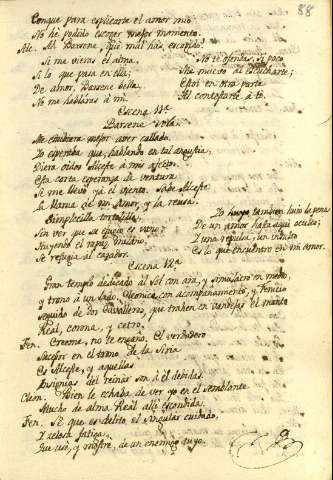 88
Conque para explicarte el amor mio
No hé podido escoger mejor momento.
Alc. Ah Barsene, qué mal has escogido!
Si me vieras el alma,
Si lo que pasa en ella;
De amor, Barsene bella,
No me hablaras à mi.
No te ofendas, si poco
Me muevo al escucharte;
Estoi en otra parte
Al contestarte à ti.
Escena 11ª
Barsene sola.
Me estuviera mejor aver callado.
Yo esperaba que, hablando en tal angustia,
Diera oidos Alceste à mis afectos.
Esta corta esperanza de ventura
Si me llevó ya el viento. Sabe Alceste
La llama de mi Amor, y la reusa.
Simplecilla tortolilla,
Sin ver que su juicio es vano
Huyendo el rapaz milano,
Se refugia al cazador.
Yo huyo tambien la pena
De un amor hasta aquí oculto;
Y una repulsa, un insulto
Es lo que encuentro en mi amor.
Escena 12ª
Gran templo dedicado al Sol con ara, y simulacro en medio
y trono à un lado. Cleonice con acompañamiento, y Fenicio
seguido de dos Cavalleros, que trahen en vandejas el manto
Real, corona, y cetro.
Fen. Creeme, no te engaño. El verdadero
Sucesor en el trono de la Siria
Es Alceste, y aquellas
Insignias del reinar son à él debidas.
Cleon. Bien le echaba de ver yo en el semblante
Mucho de alma Real allí escondida.
Fen. Sé que es delito el singular cuidado,
Y zelosa fatiga
Que uso, y mostre, de un enemigo tuyo.